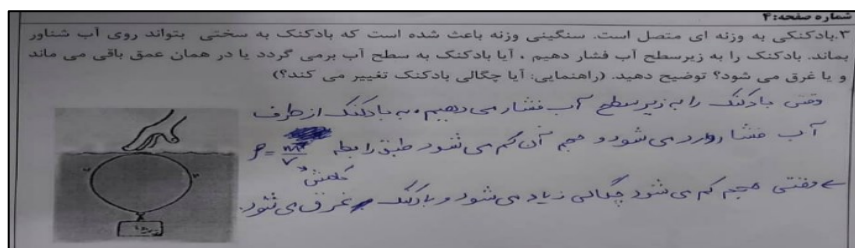 شماره صفحه:۴
۳.بادکنکی به وزنه ای متصل است. سنگینی وزنه باعث شده است که بادکنک به سختی بتواند روی آب شناور
بماند. بادکنک را به زیرسطح آب فشار دهیم ، آیا بادکنک به سطح آب برمی گردد یا در همان عمق باقی می ماند
و یا غرق می شود؟ توضیح دهید. (راهنمایی: آیا چگالی بادکنک تغییر می کند؟)
وقتی بادکنک را به زیر سطح آب فشار می دهیم، به بادکنک از طرف
آب فشار وارد می شود و حجم آن کم می شود طبق رابطه ρ = m/V
کاهش
← وقتی حجم کم می شود چگالی زیاد می شود و بادکنک غرق می شود.
وزنه